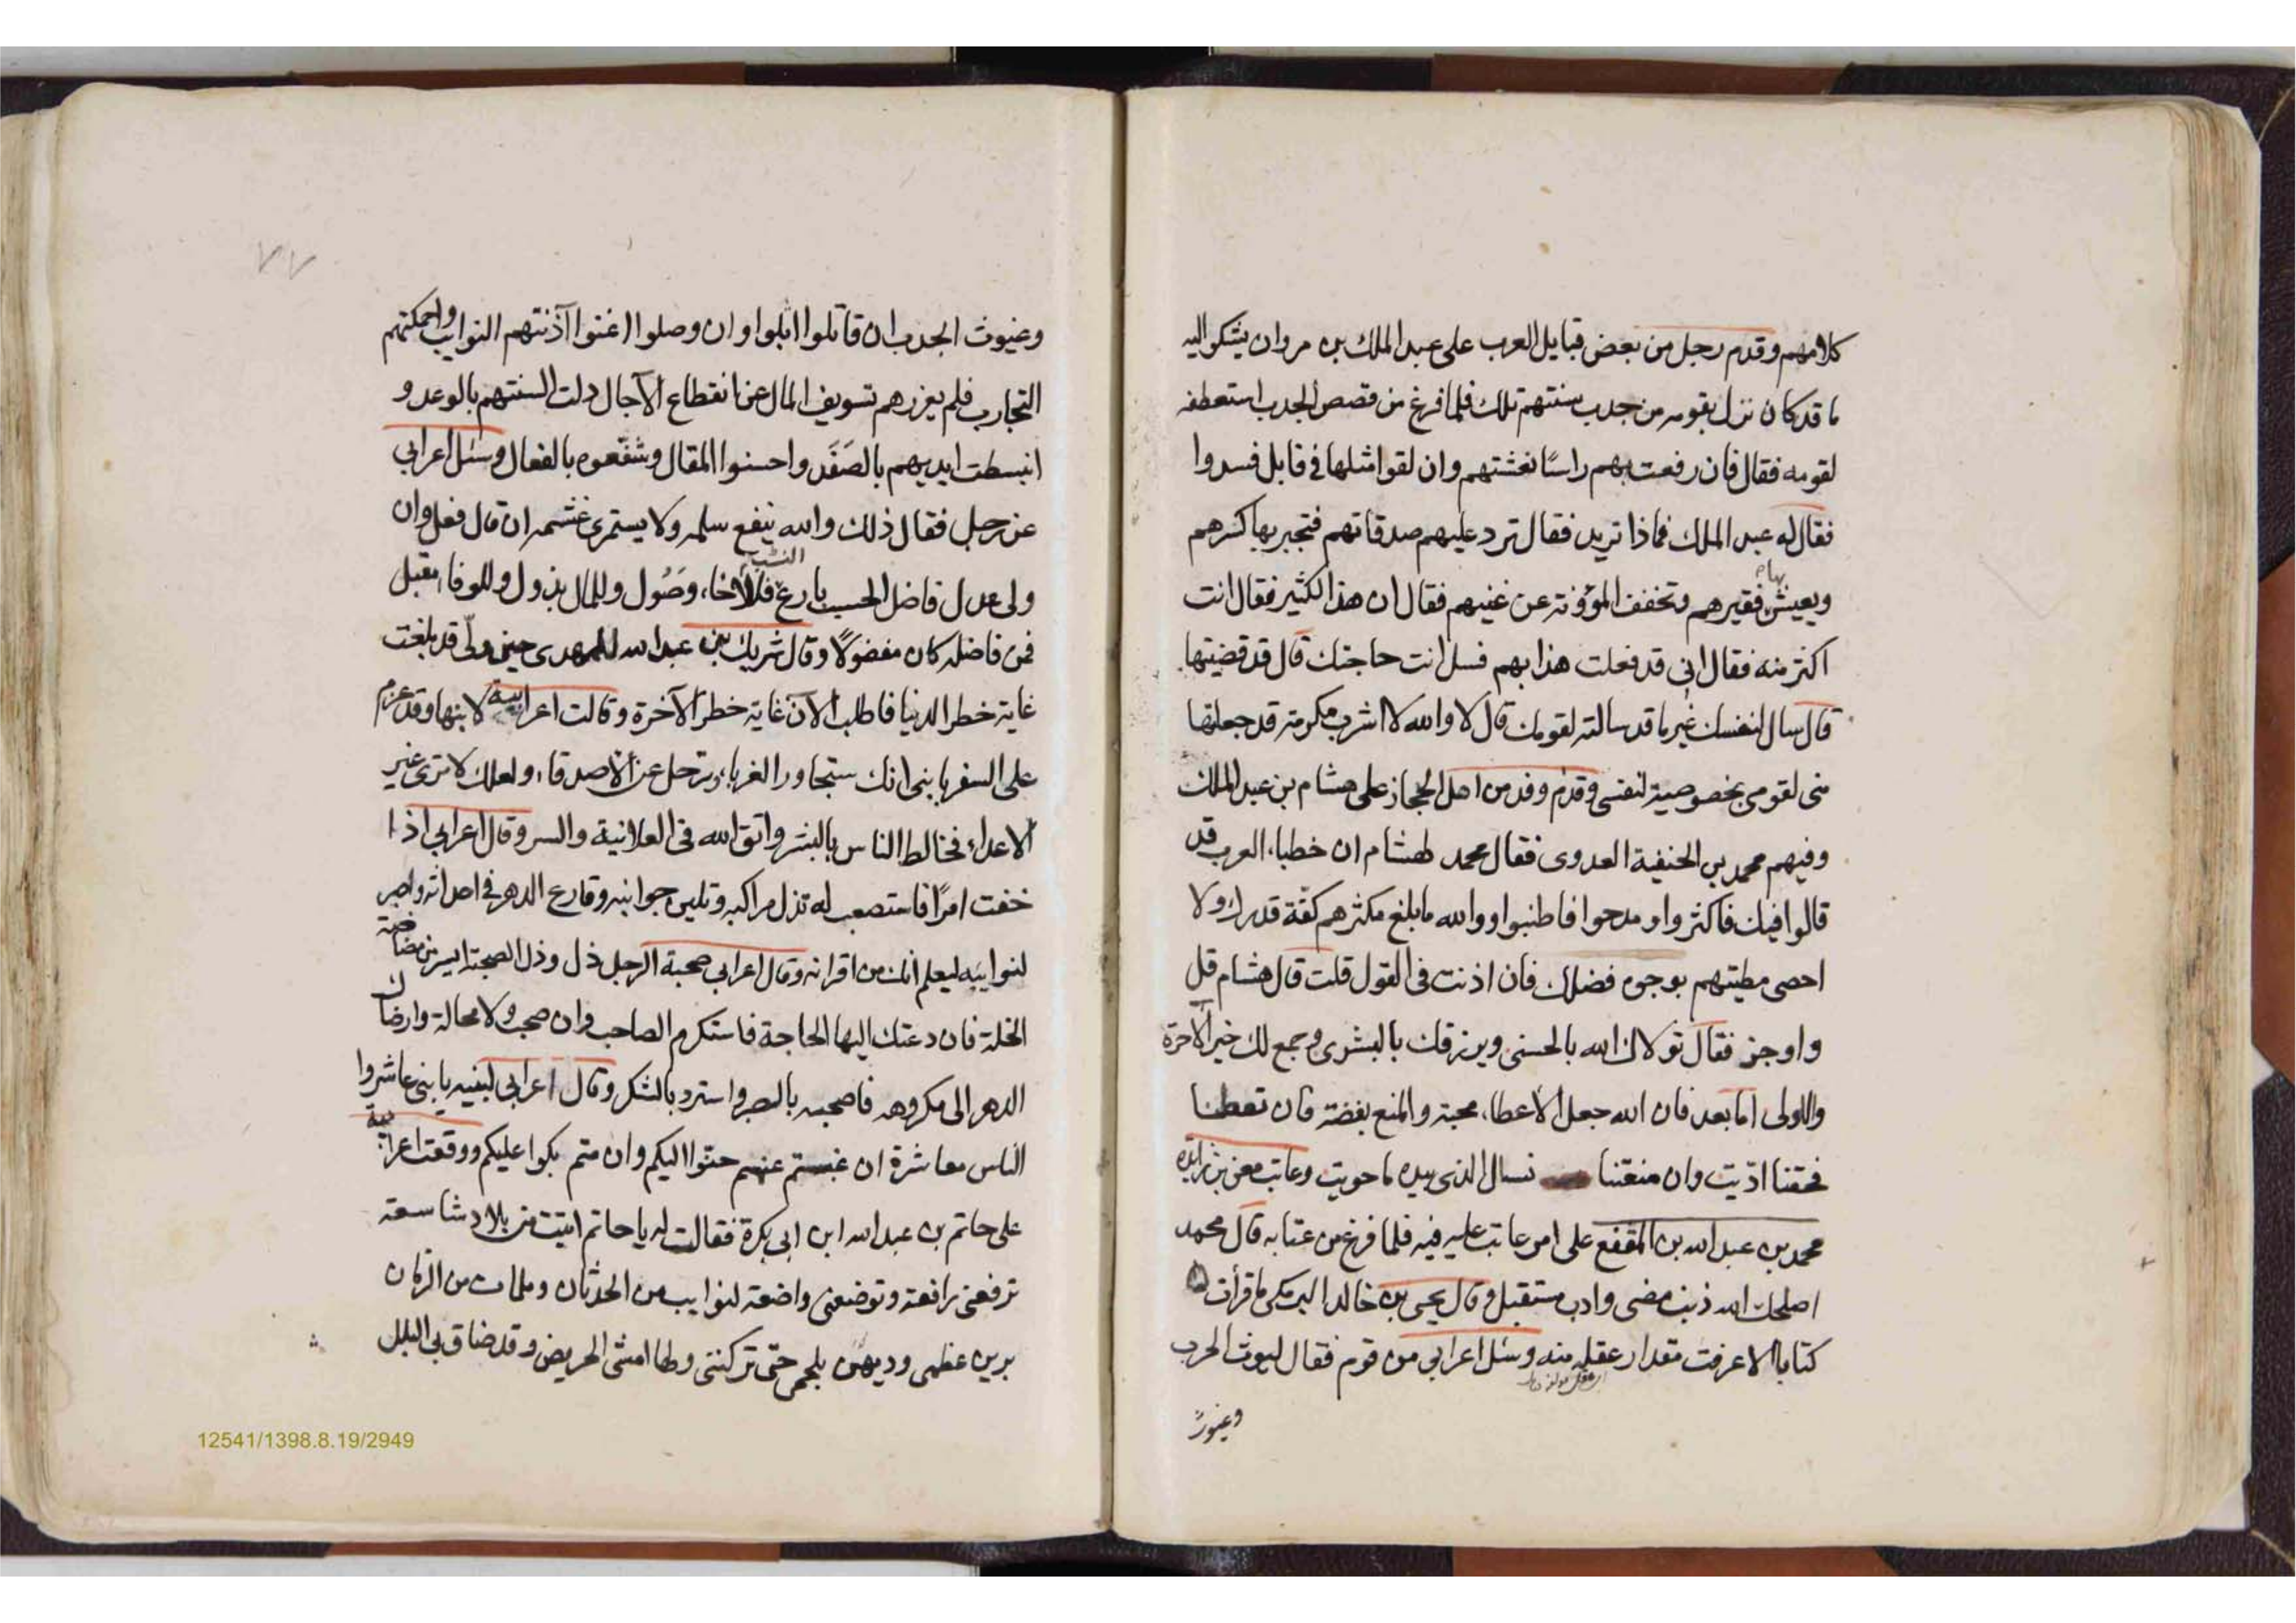 كلامهم وقدم رجل من بعض قبايل العرب على عبد الملك بن مروان يشكو اليه
ما قد كان نزل بقومه من جدب سنتهم تلك فلما فرغ من قصص الجدب استعطفه
لقومه فقال فان رفعت بهم راسًا نعشتهم وان لقوا مثلها في قابل فسدوا
فقال له عبد الملك فماذا تريد فقال ترد عليهم صدقاتهم فتجبر بها كسرهم
ويعيش بها فقيرهم وتخفف المؤونة عن غنيهم فقال ان هذا لكثير فقال انت
اكثر منه فقال اني قد فعلت هذا بهم فسل انت حاجتك قال قد قضيتها
قال سال لنفسك غير ما قد سالته لقومك قال لا والله لا اشرب مكرمة قد جعلتها
مني لقومي بخصوصية لنفسي وقدم وفد من اهل الحجاز على هشام بن عبد الملك
وفيهم محمد بن الحنفية العدوى فقال محمد لهشام ان خطباء العرب قد
قالوا فيك فاكثروا ومدحوا فاطنبوا ووالله ما بلغ مكثرهم كفة قدرك ولا
احصى مطيتهم بوجوه فضلك فان اذنت في القول قلت قال هشام قل
واوجز فقال تولاك الله بالحسنى ويرزقك بالبشرى وجمع لك خير الآخرة
والاولى اما بعد فان الله جعل الاعطاء محبة والمنع بغضة فان تعطنا
فحقنا ادّيت وان منعتنا نسال الذي بيده ما حويت وعاتب معن بن زايده
محمد بن عبد الله بن المقفع على امر عاتب عليه فيه فلما فرغ من عتابه قال محمد
اصلحك الله ذنب مضى وادب مستقبل وقال يحيى بن خالد البرمكى ما قرأت
كتابا الا عرفت مقدار عقله منه وسئل اعرابي من قوم فقال ليوث الحرب
وغيوث
٧٧
وغيوث الجدب ان قاتلوا ابلوا وان وصلوا اغنوا آذنتهم النوايب واحكمتهم
التجارب فلم يغررهم تسويف المال عن انقطاع الآجال دلت السنتهم بالوعد و
انبسطت ايديهم بالصَفَد واحسنوا المقال وشفعوه بالفعال وسئل اعرابي
عن رجل فقال ذلك والله ينفع سلمه ولا يستمرى غشمه ان قال فعل وان
ولى عدل فاضل الحسب بارع النسب فللاخاء وصُول وللمال بذول وللوفاء مقبل
فمن فاضله كان مفضولًا وقال شريك بن عبد الله للمهدى حين ولّى قد بلغت
غاية خطر الدنيا فاطلب الآن غاية خطر الآخرة وقالت اعرابية لابنها وقد عزم
على السفر يا بنى انك ستجاور الغرباء وترحل عن الاصدقاء ولعلك لا ترى غير
الاعداء فخالط الناس بالبشر واتق الله في العلانية والسر وقال اعرابي اذا
خفت امرًا فاستصعب له تذل مراكبه وتلين جوانبه وقارع الدهر في احداثه واصبر
لنوايبه ليعلم انك من اقرانه وقال اعرابي صحبة الرجل ذل وذل الصحبة ايسر من مضاضة
الخلة فان دعتك اليها الحاجة فاستكرم الصاحب وان صحب ولا محالة وارضاك
الدهر الى مكروهه فاصحبه بالصبر واسترد بالشكر وقال اعرابي لبنيه يا بنى عاشروا
الناس معاشرة ان غبتم عنهم حنوا اليكم وان متم بكوا عليكم ووقفت اعرابية
على حاتم بن عبد الله ابن ابي بكرة فقالت له يا حاتم اتيت من بلاد شاسعة
ترفعنى رافعة وتوضعنى واضعة لنوايب من الحدثان وملمات من الزمان
برين عظمى وديهن بلحمى حتى تركننى ولها امشى الحريض وقد ضاق بي البلل
12541/1398.8.19/2949